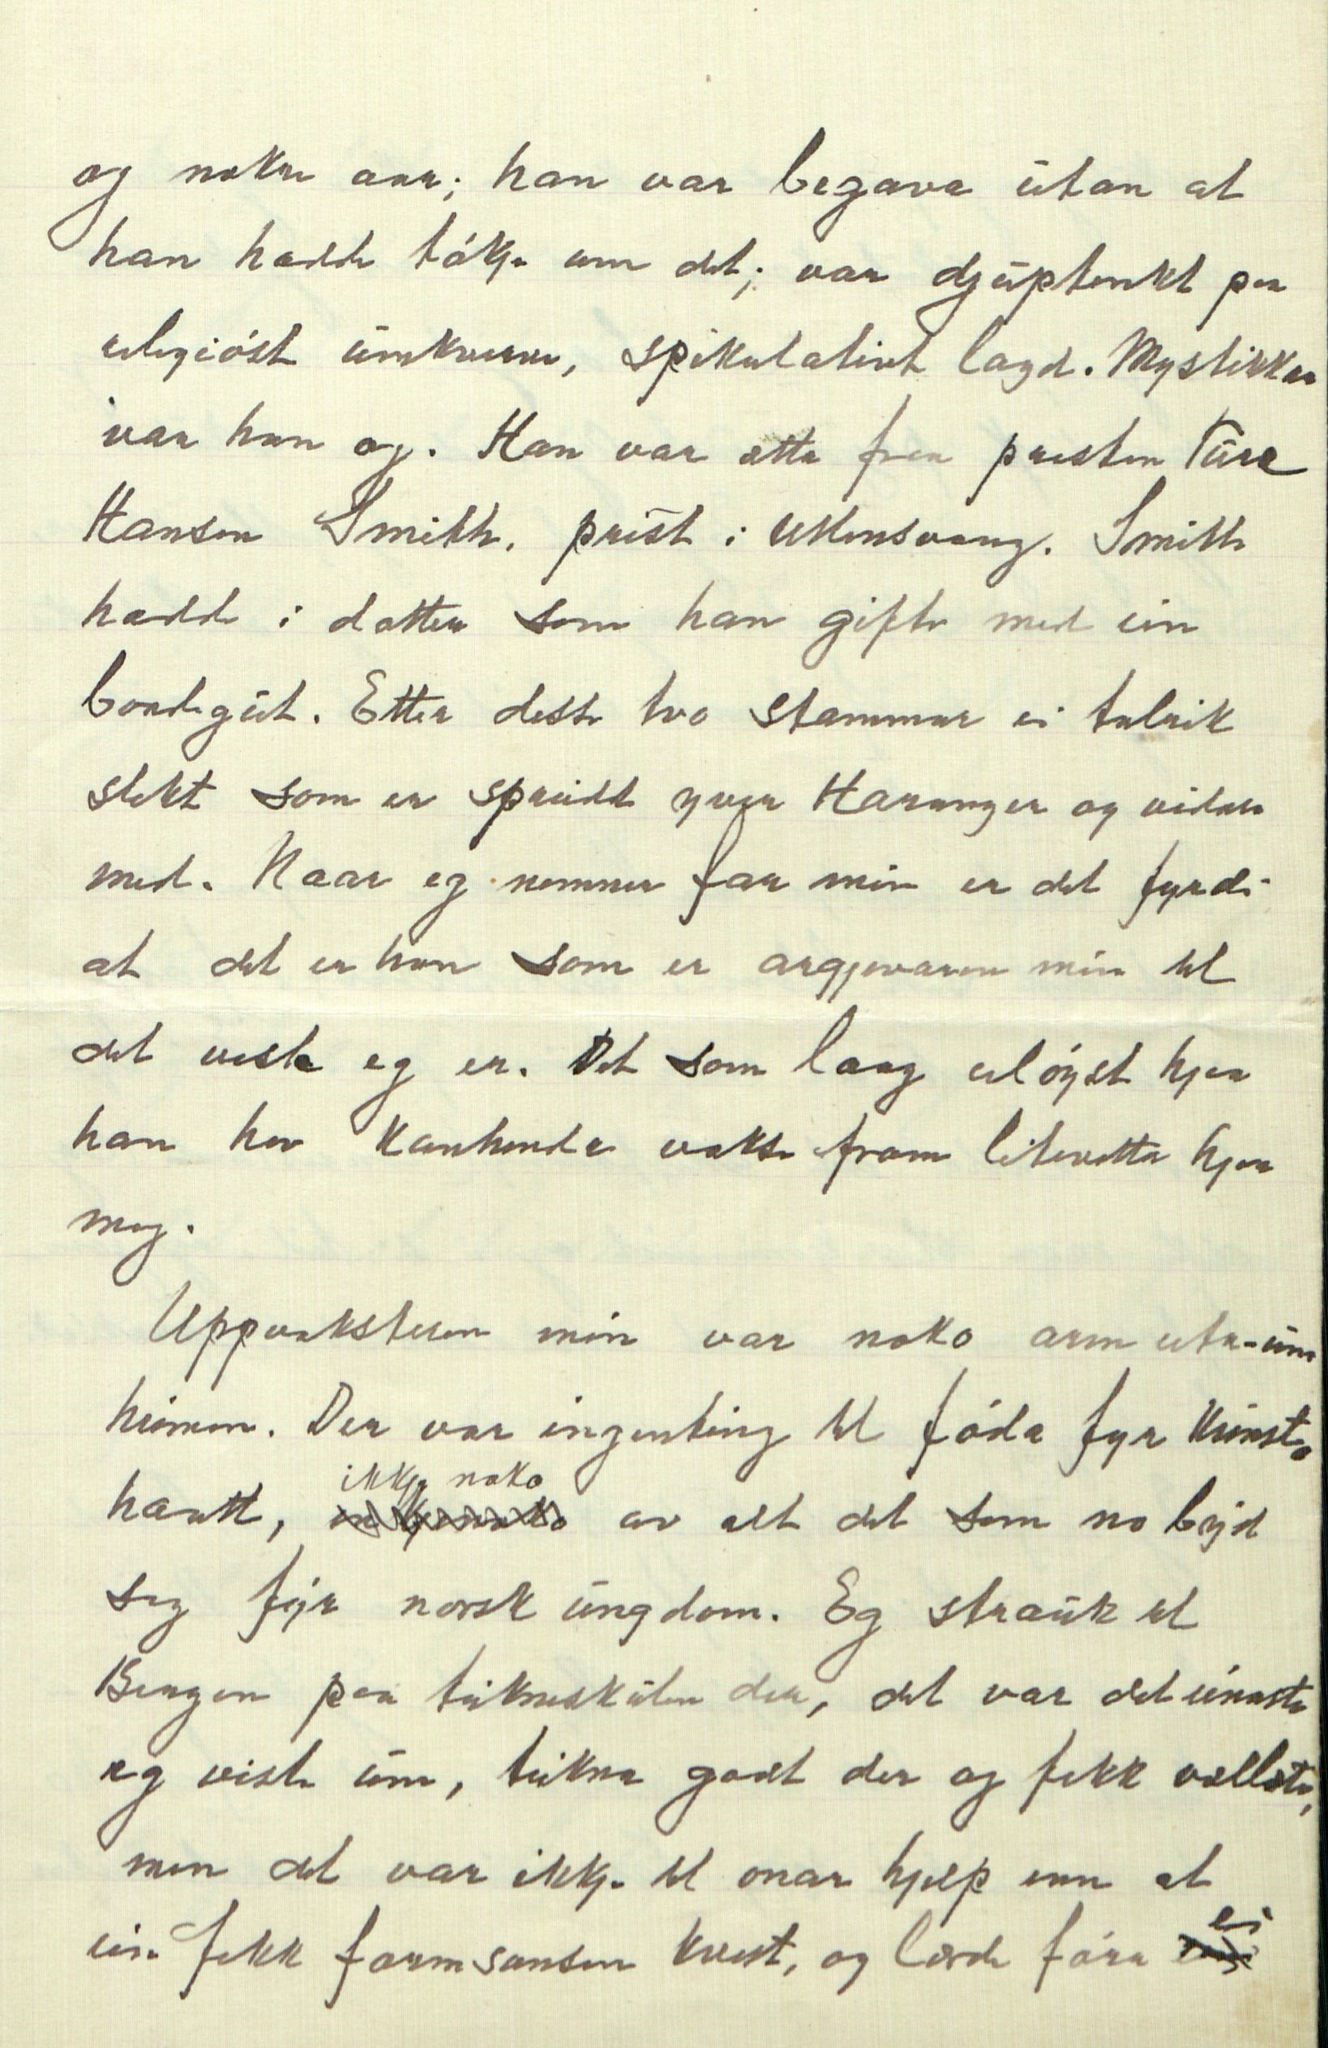 og nokre aar; han var begava utan at
han hadde tókje um det; var djuptenkt paa
religióst umkverve, spikulativt lagd. Mystikkar
var han og. Han var ætta fraa presten Ture
Hansen Smith, prest i Ullensvang. Smith
hadde i dotter som han gifte med ein
bondegut. Etter desse tvo stammar ei talrik
slekt som er spreidd yver Haranger og vidare
med. Naar eg nemner far min er det fyrdi
at det er han som er argjevaren min til
det vesle eg er. Det som laag ulóyst hjaa
han hev kanhenda vakse fram litevetta hjaa
meg.
Uppvaksteren min var noko arm uta-um
heimen. Der var ingenting til fóda fyr kunst-
haatt, ikkje noko av alt det som no byd
seg fyr norsk ungdom. Eg strauk til
Bergen paa teikneskulen der, det var det einaste
eg viste um, teikna godt der og fekk vellæte,
men det var ikkje til onar hjelp enn at
ein fekk formsansen kvest, og lærde fóra ei